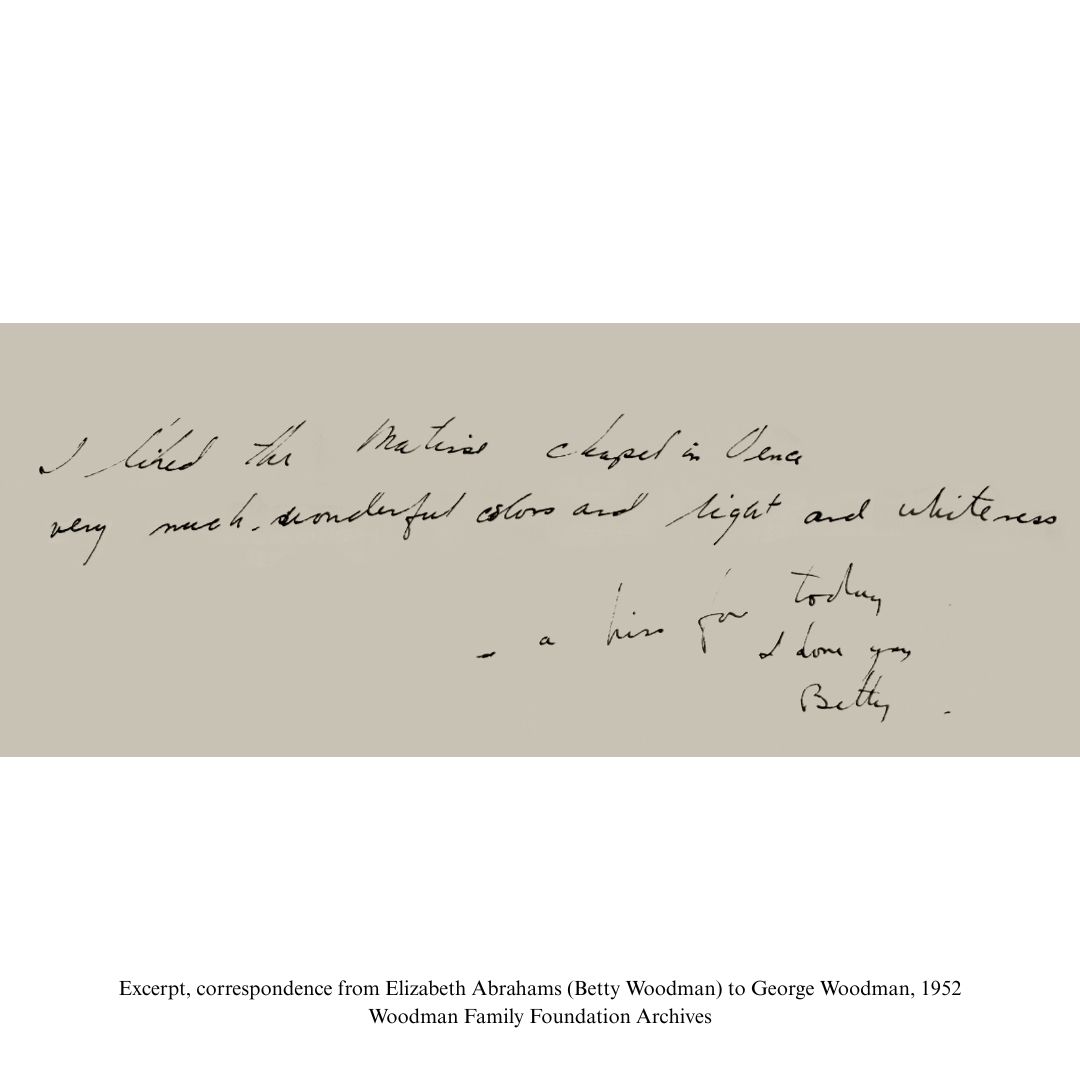 I liked the Matisse chapel in Vence
very much. wonderful colors and light and whiteness
– a kiss for today
I love you
Betty .
Excerpt, correspondence from Elizabeth Abrahams (Betty Woodman) to George Woodman, 1952
Woodman Family Foundation Archives